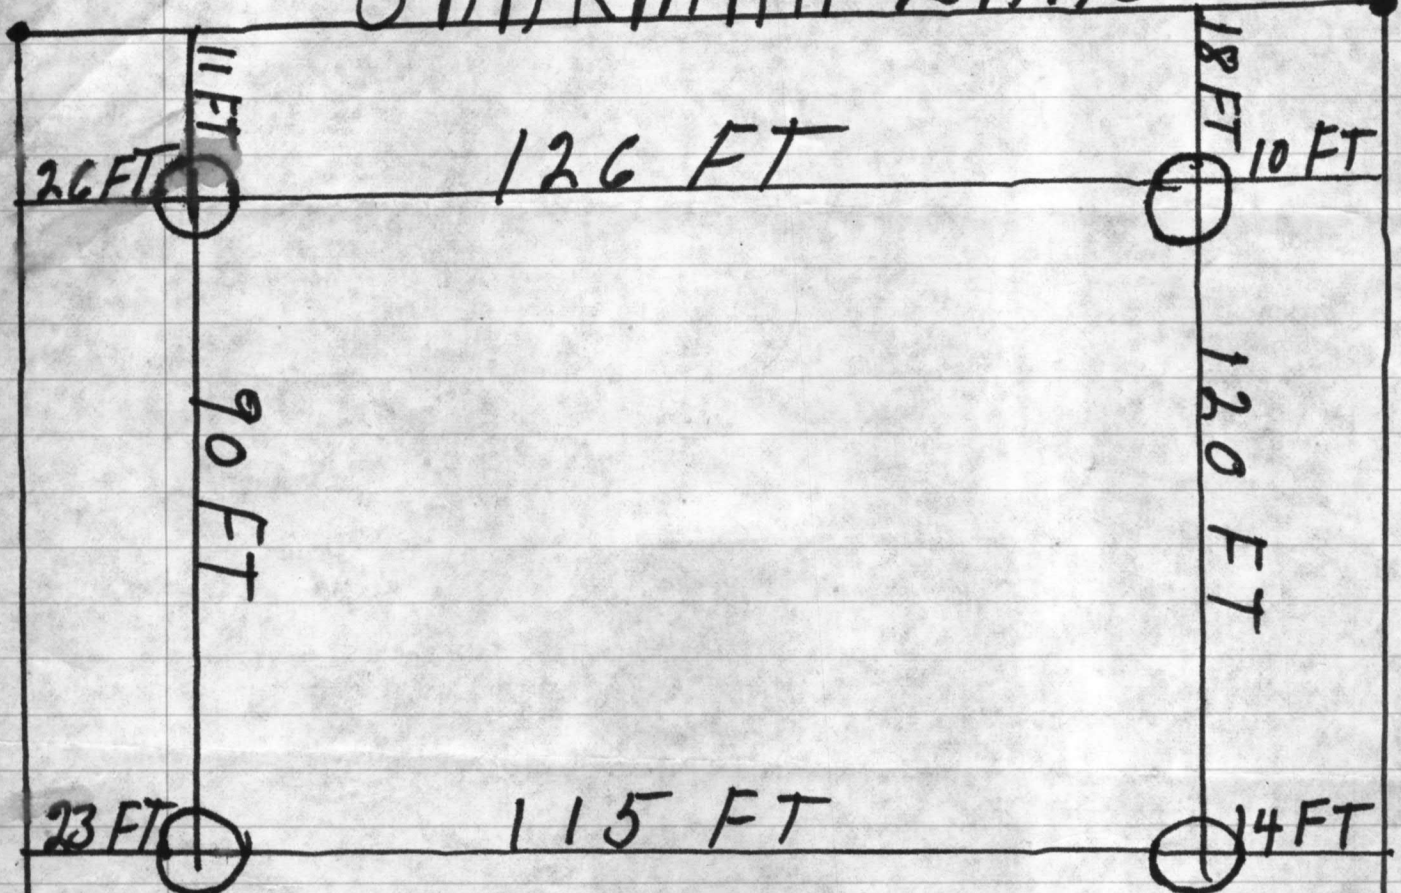 11 FT
18 FT
26 FT
126 FT
10 FT
90 FT
120 FT
23 FT
115 FT
14 FT